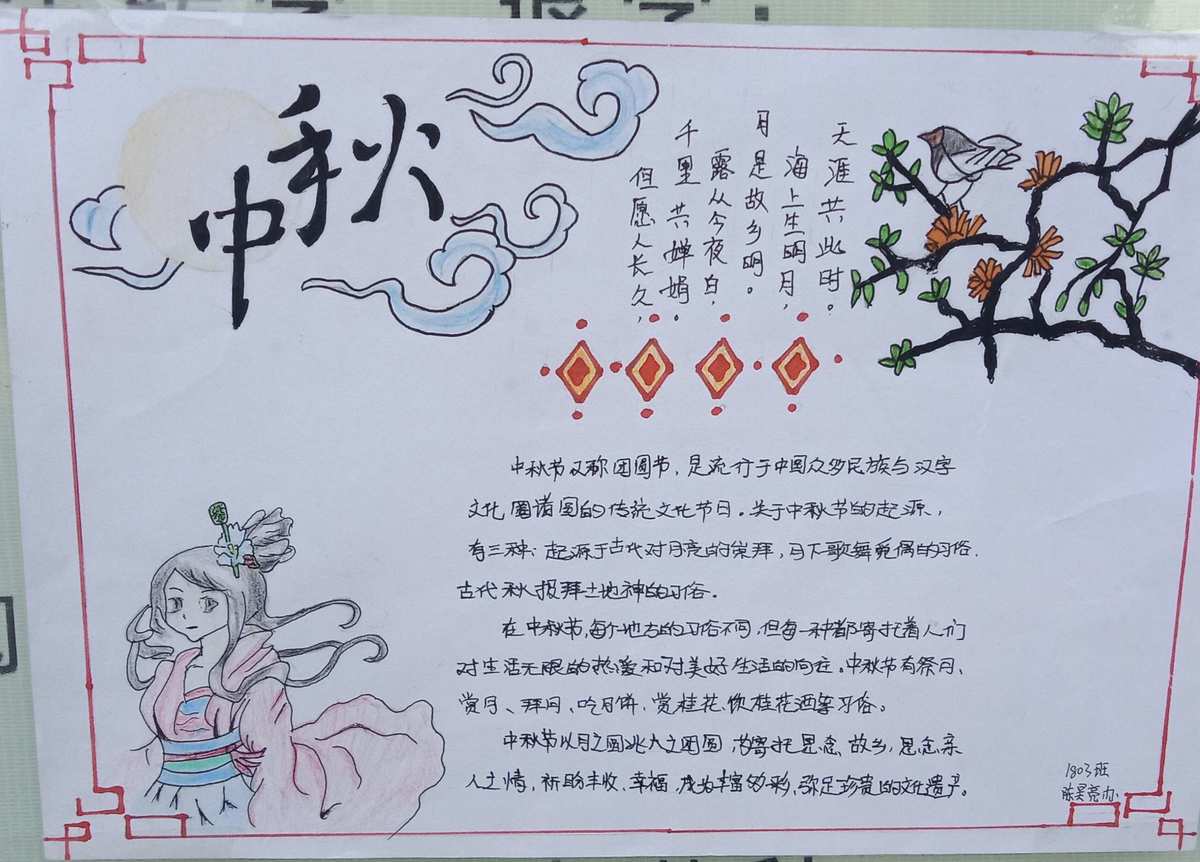 中秋
但愿人长久,
千里共婵娟。
露从今夜白,
月是故乡明。
海上生明月,
天涯共此时。
中秋节又称团圆节,是流行于中国众多民族与汉字
文化圈诸国的传统文化节日。关于中秋节的起源,
有三种:起源于古代对月亮的崇拜,月下歌舞觅偶的习俗.
古代秋报拜土地神的习俗。
在中秋节,每个地方的习俗不同,但每一种都寄托着人们
对生活无限的热爱和对美好生活的向往。中秋节有祭月、
赏月、拜月、吃月饼、赏桂花、饮桂花酒等习俗。
中秋节以月之圆兆人之团圆 为寄托思念故乡,思念亲
人之情,祈盼丰收、幸福,成为丰富多彩,弥足珍贵的文化遗产。
1803班